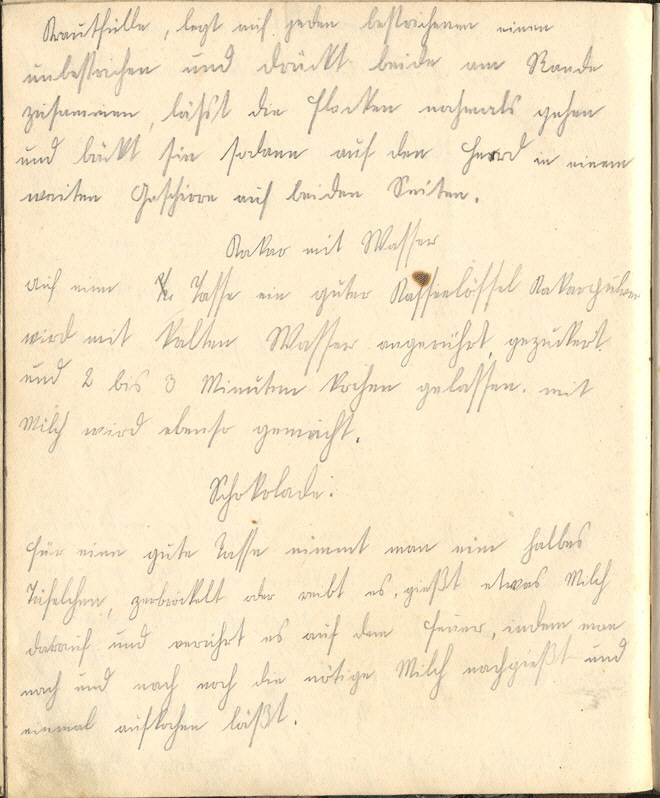 Krautfülle, legt auf jeden bestrichenen einen
unbestrichen und drückt beide am Rande
zusammen, läßt die Flecken nochmals gehen
und bäckt sie sodann auf den Herd in einem
weiten Geschirre auf beiden Seiten.
Kakao mit Wasser
auf eine Tasse ein guter Kaffeelöffel Kakaopulver
wird mit kalten Wasser angerührt, gezuckert
und 2 bis 3 Minuten kochen gelassen. mit
Milch wird ebenso gemacht.
Schokolade:
für eine gute Tasse nimmt man ein halbes
Täfelchen, zerbröckelt oder reibt es, gießt etwas Milch
darauf und verrührt es auf dem Feuer, indem man
nach und nach noch die nötige Milch nachgießt und
einmal aufkochen läßt.